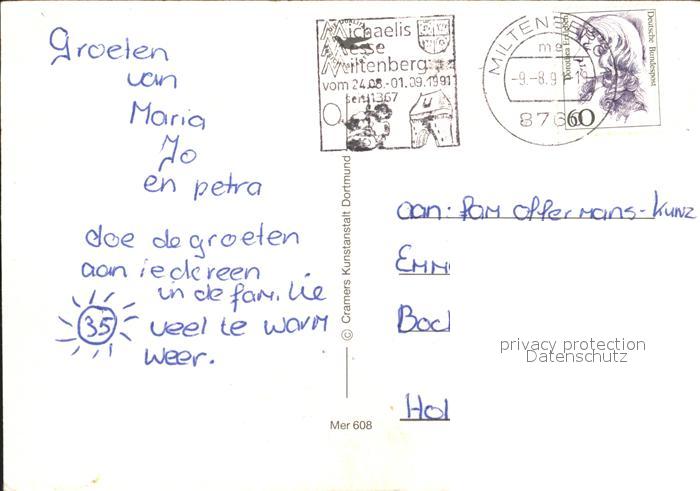 Groeten
van
Maria
Jo
en petra
doe de groeten
aan iedereen
in de familie
35
veel te warm
weer.
Michaelis
Messe
Miltenberg
vom 24.08.-01.09.1991
seit 1367
MILTENBERG
mg
-9.-8.9
876
Deutsche Bundespost
60
© Cramers Kunstanstalt Dortmund
Mer 608
aan: fam Offermans-Kunz
Emm
Bocl
Hol
privacy protection
Datenschutz